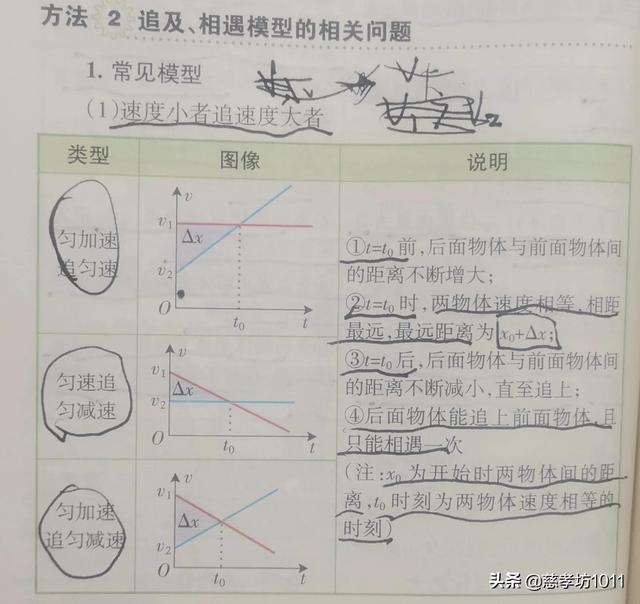 方法 2 追及、相遇模型的相关问题
1. 常见模型
(1)速度小者追速度大者
类型 图像 说明
匀加速
追匀速
v
v₁
Δx
v₂
O
t₀
t
匀速追
匀减速
v
v₁
Δx
v₂
O
t₀
t
匀加速
追匀减速
v
v₁
Δx
v₂
O
t₀
t
①t=t₀前,后面物体与前面物体间
的距离不断增大;
②t=t₀时,两物体速度相等,相距
最远,最远距离为x₀+Δx;
③t=t₀后,后面物体与前面物体间
的距离不断减小,直至追上;
④后面物体能追上前面物体,且
只能相遇一次
(注:x₀为开始时两物体间的距
离,t₀时刻为两物体速度相等的
时刻)
头条 @慈孝坊1011